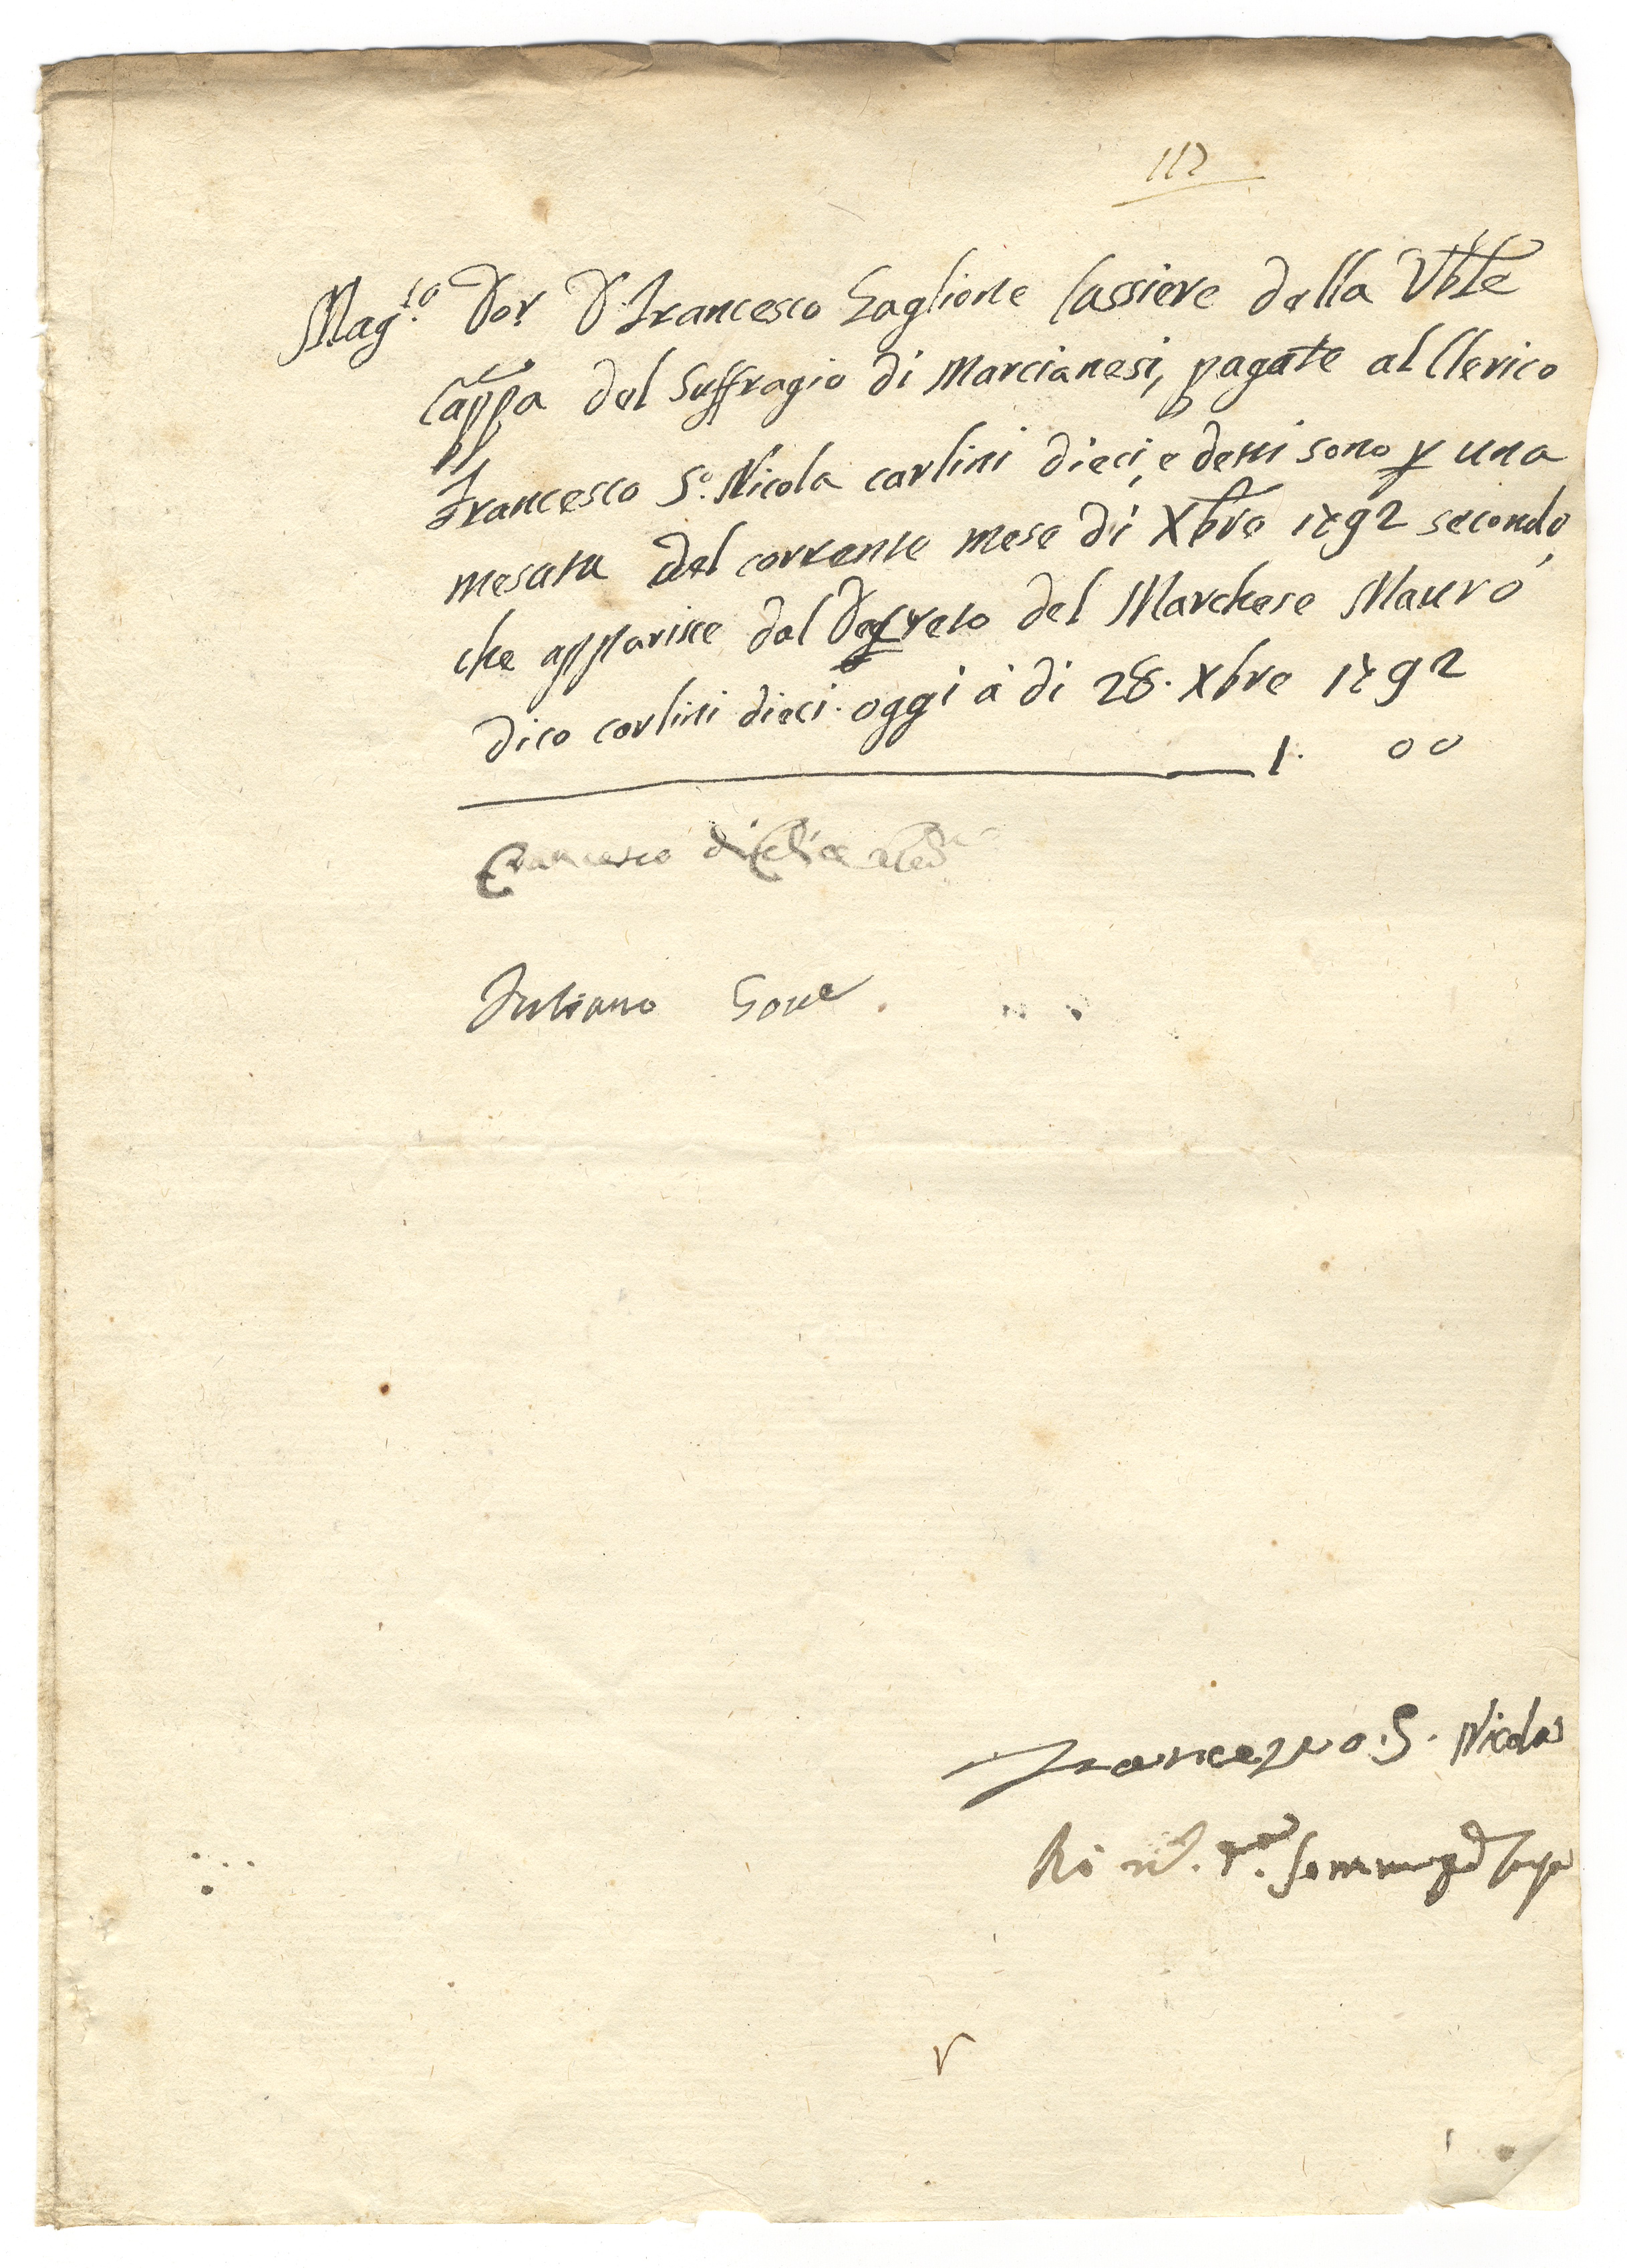 112
Mag.co Dor D. Francesco Gaglione Cassiere della Vble
Cappa del Suffragio di Marcianesi, pagate al Clerico
Francesco S.o Nicola carlini dieci, e detti sono p una
mesata del corrente mese di Xbre 1792 secondo,
che apparisce dal Decreto del Marchese Mauro
dico carlini dieci. oggi à di 28. Xbre 1792
1. 00
Francesco di
Iuliano Gove
Francesco S. Nicola